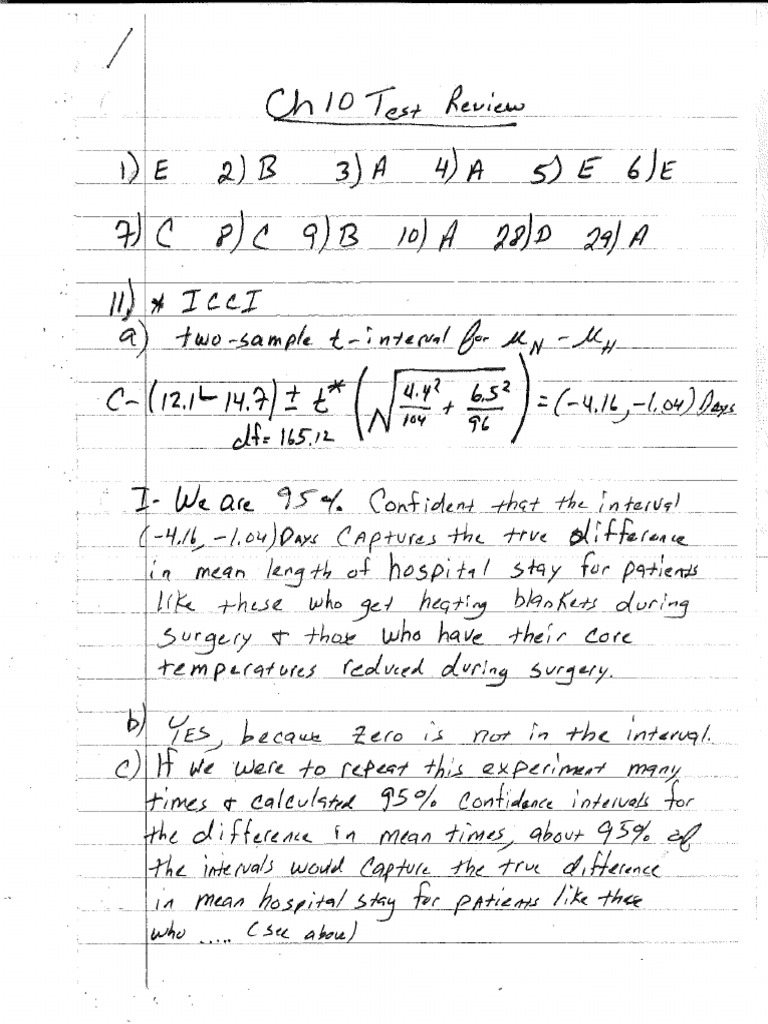 1
Ch 10 Test Review
1) E 2) B 3) A 4) A 5) E 6) E
7) C 8) C 9) B 10) A 28) D 29) A
11) * I C C I
a) two-sample t-interval for μN − μH
C - (12.1 - 14.7) ± t* (√(4.4²/104 + 6.5²/96)) = (-4.16, -1.04) Days
df = 165.12
I - We are 95% Confident that the interval
(-4.16, -1.04) Days captures the true difference
in mean length of hospital stay for patients
like these who get heating blankets during
surgery & those who have their core
temperatures reduced during surgery.
b) YES, because zero is not in the interval.
c) If we were to repeat this experiment many
times & calculated 95% confidence intervals for
the difference in mean times, about 95% of
the intervals would capture the true difference
in mean hospital stay for patients like these
who ..... (see above)